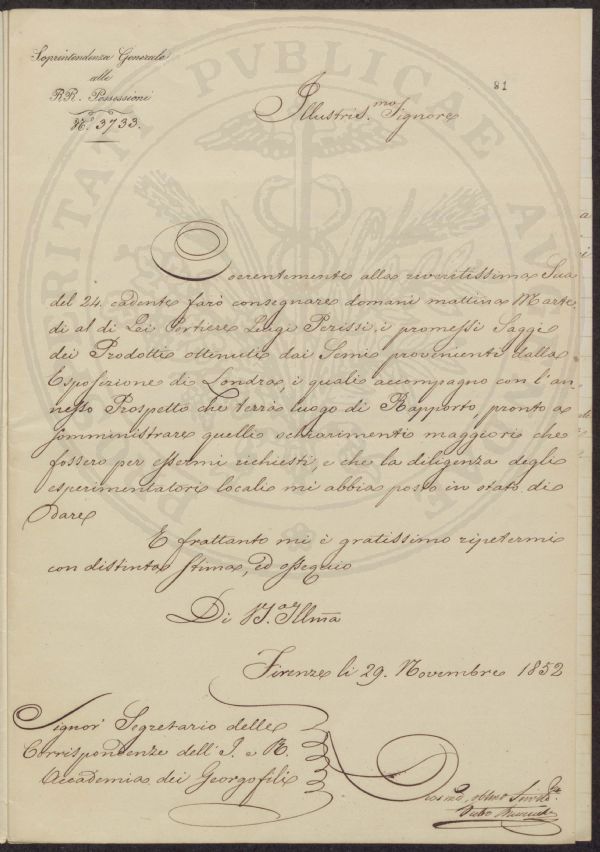 Soprintendenza Generale
alle
RR. Possessioni
N.º 3733.
81
Illustris.mo Signore
Coerentemente alla reveritissima Sua
del 24. cadente farò consegnare domani mattina Marte
di al di Lei Portiere Luigi Perissi, i promessi Saggi
dei Prodotti ottenuti dai Semi provenienti dalla
Esposizione di Londra, i quali accompagno con l'an
nesso Prospetto che terrà luogo di Rapporto, pronto a
somministrare quelli schiarimenti maggiori che
fossero per essermi richiesti, e che la diligenza degli
esperimentatori locali mi abbia posto in stato di
dare
E frattanto mi è gratissimo ripetermi
con distinta stima, ed ossequio
Di V.a Illma
Firenze li 29. Novembre 1852
Signor Segretario delle
Corrispondenze dell'I. e R.
Accademia dei Georgofili